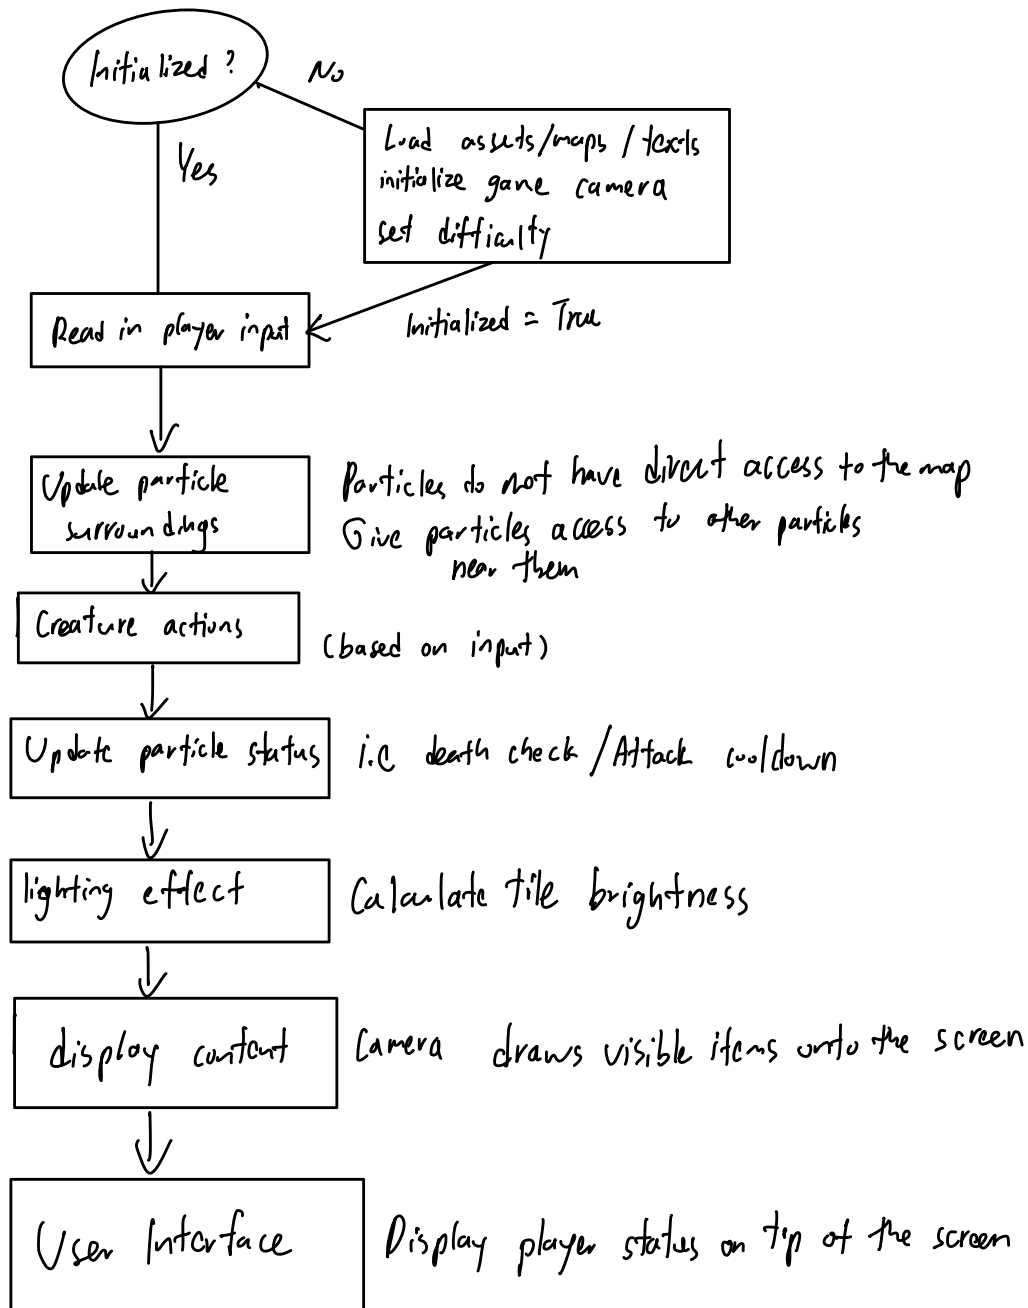 Initialized?
No
Yes
Load assets/maps/texts
initialize game camera
set difficulty
Read in player input
Initialized = True
Update particle
surroundings
Particles do not have direct access to the map
Give particles access to other particles
near them
Creature actions
(based on input)
Update particle status
i.e death check/Attack cooldown
lighting effect
Calculate tile brightness
display content
Camera draws visible items onto the screen
User Interface
Display player status on top of the screen